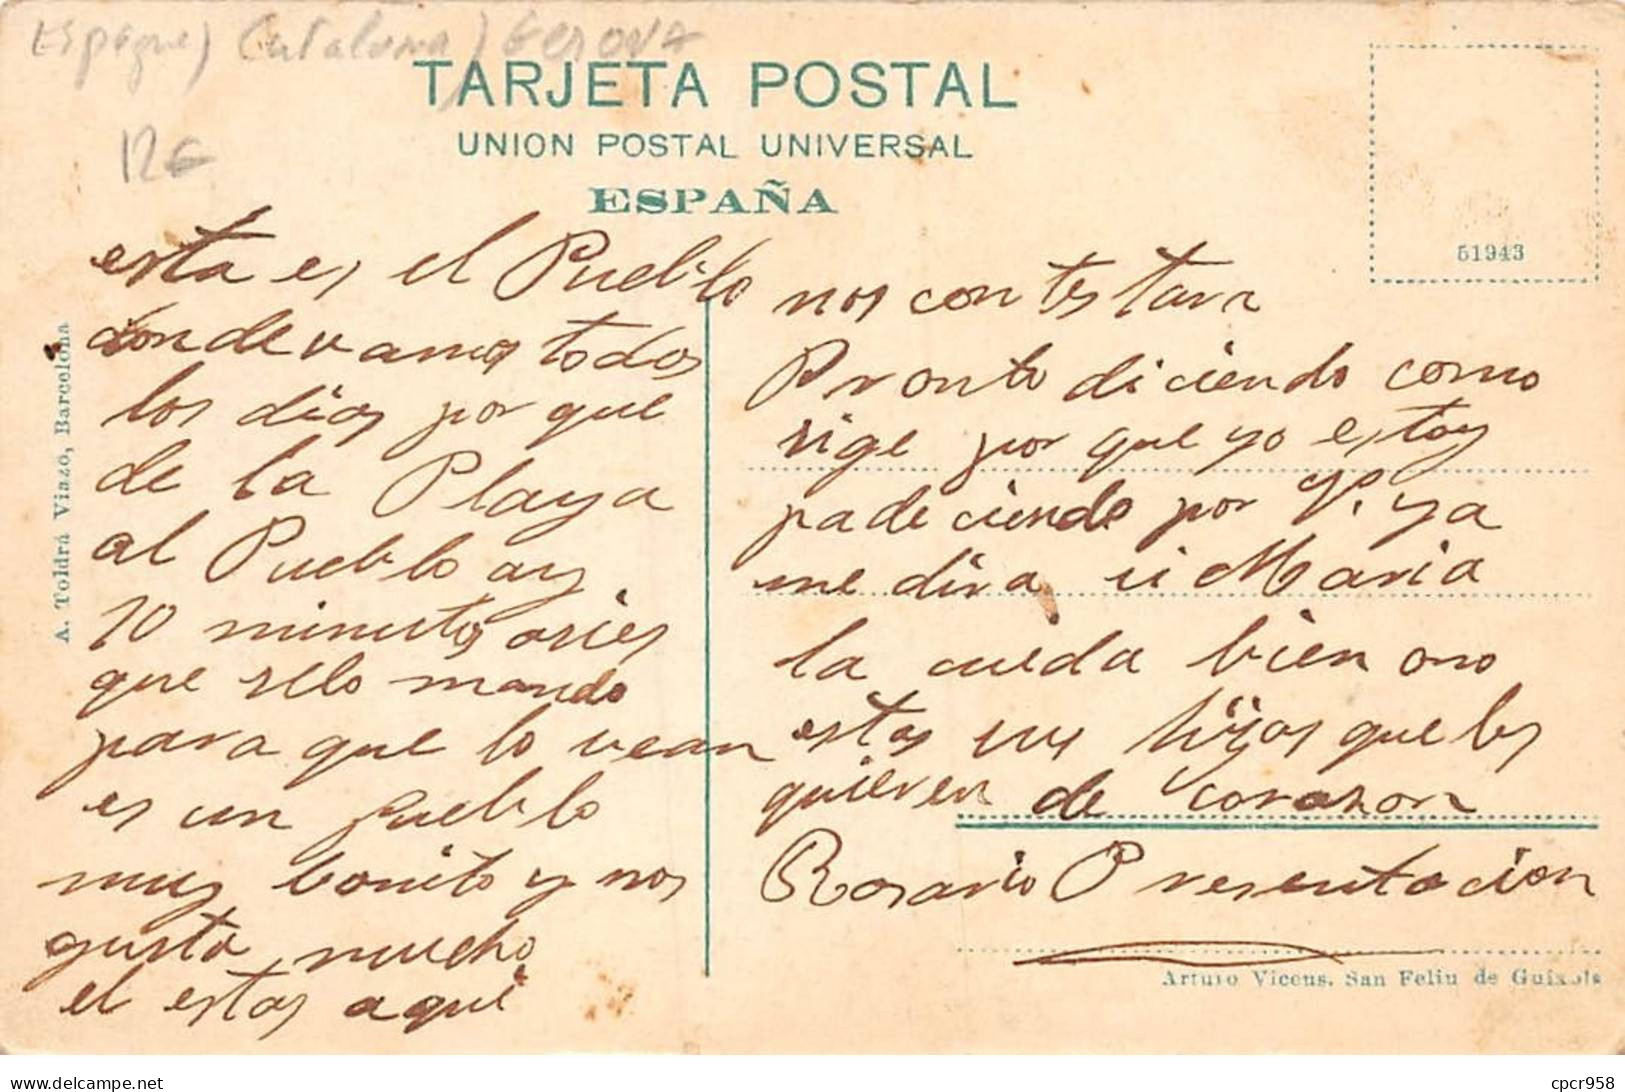 Espagne) Cataluna) GERONA
TARJETA POSTAL
UNION POSTAL UNIVERSAL
ESPAÑA
12€
51943
A. Toldrá Viazo, Barcelona
esta es el Pueblo
donde vamos todos
los dias por que
de la Playa
al Pueblo ay
10 minutos
que selo mando
para que lo vean
es un pueblo
muy bonito y nos
gusta mucho
el estar aqui
nos contestara
Pronto diciendo como
sige por que yo estoy
padeciendo por V. ya
me dira si Maria
la cuida bien ono
estas sus hijas que les
quieren de corazon
Rosario Presentacion
Arturo Vicens, San Feliu de Guixols
cpcr958